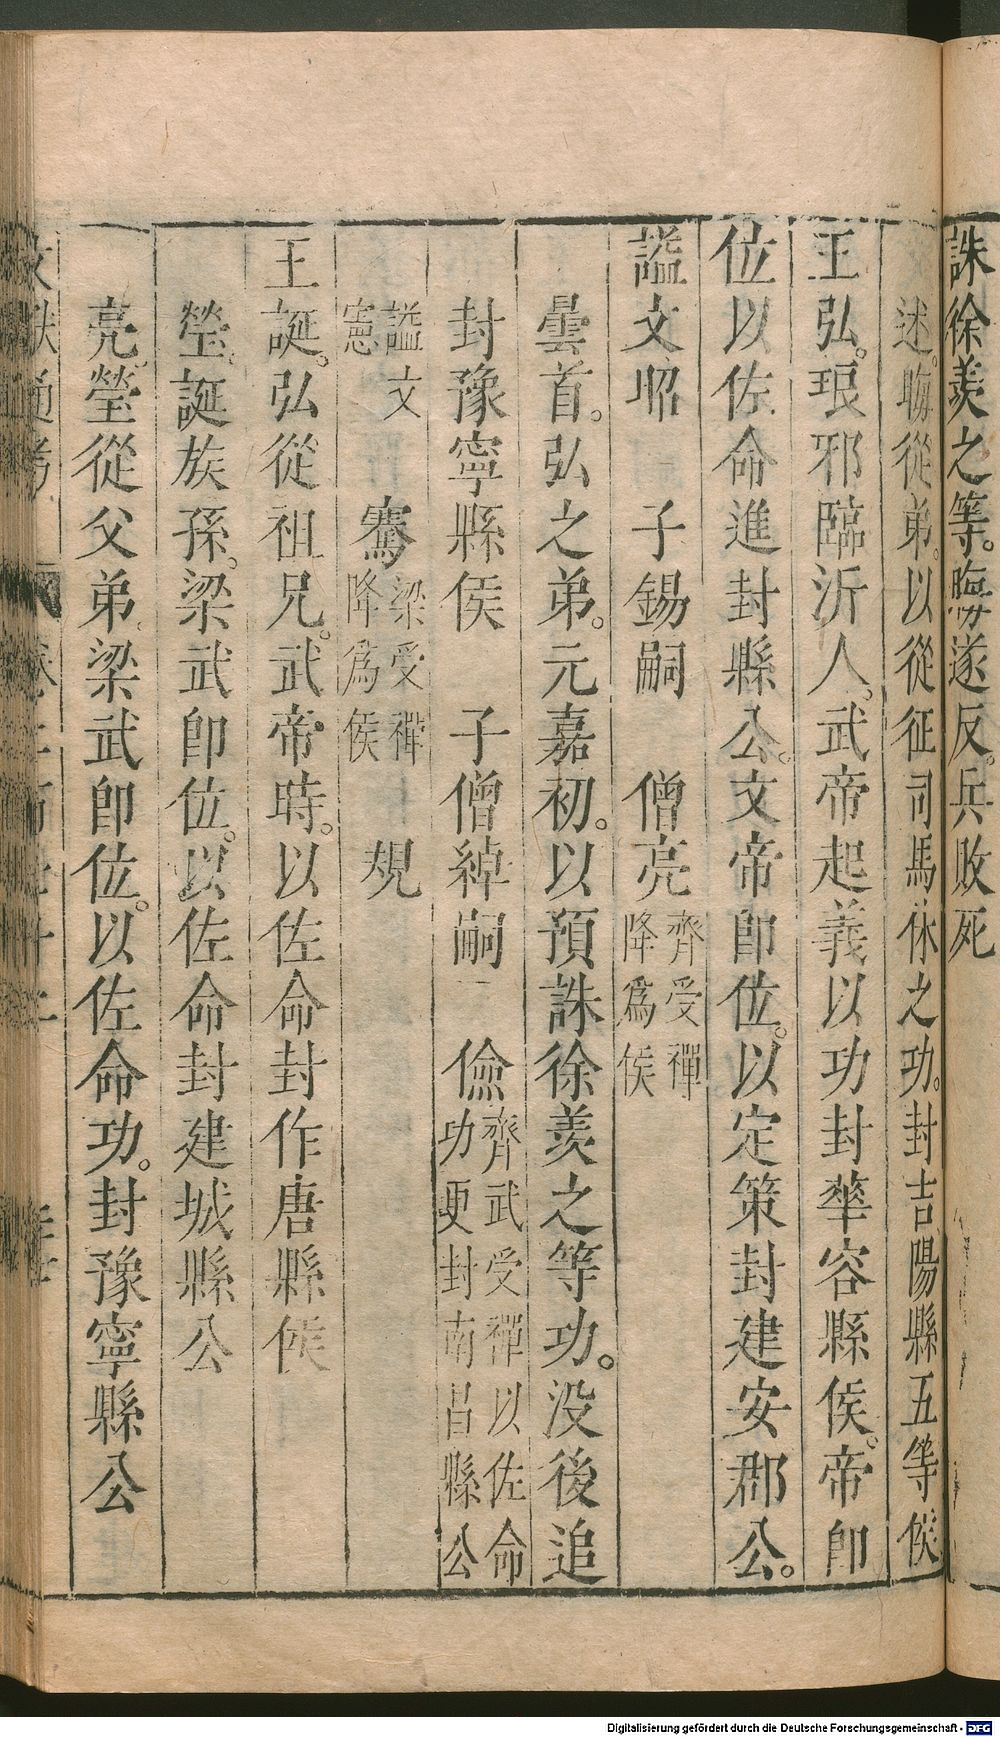 誅徐羨之等。晦遂反。兵敗死
述。晦從弟。以從征司馬休之功。封吉陽縣五等侯
王弘。琅邪臨沂人。武帝起義以功封華容縣侯。帝卽
位以佐命進封縣公。文帝卽位。以定策封建安郡公。
謚文昭 子錫嗣 僧亮 齊受禪降爲侯
曇首。弘之弟。元嘉初。以預誅徐羨之等功。没後追
封豫寧縣侯 子僧綽嗣 儉 齊武受禪以佐命功更封南昌縣公
謚文憲 騫 梁受禪降爲侯 規
王誕。弘從祖兄。武帝時。以佐命封作唐縣侯
瑩。誕族孫。梁武卽位。以佐命封建城縣公
亮。瑩從父弟。梁武卽位。以佐命功。封豫寧縣公
文獻通考
Digitalisierung gefördert durch die Deutsche Forschungsgemeinschaft - DFG